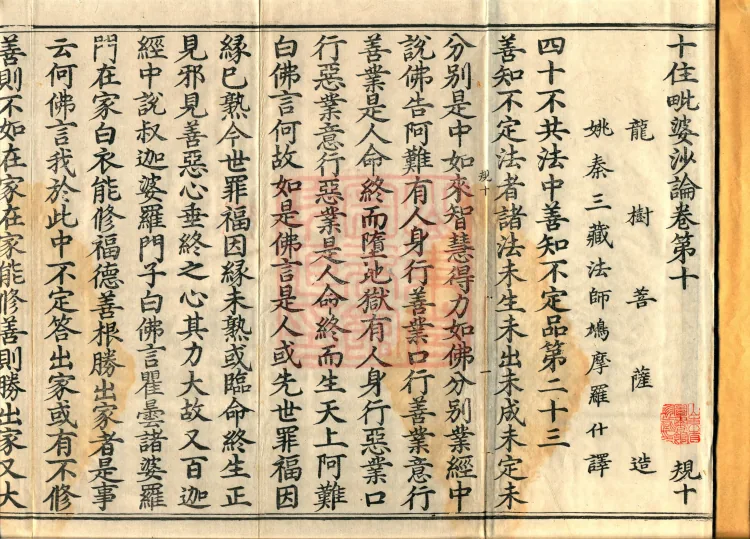 十住毗婆沙論卷第十 規十
龍樹菩薩造
姚秦三藏法師鳩摩羅什譯
四十不共法中善知不定品第二十三
善知不定法者諸法未生未出未成未定未
規十
分別是中如來智慧得力如佛分別業經中
說佛告阿難有人身行善業口行善業意行
善業是人命終而墮地獄有人身行惡業口
行惡業意行惡業是人命終而生天上阿難
白佛言何故如是佛言是人或先世罪福因
緣已熟今世罪福因緣未熟或臨命終生正
見邪見善惡心垂終之心其力大故又百迦
經中說叔迦婆羅門子白佛言瞿曇諸婆羅
門在家白衣能修福德善根勝出家者是事
云何佛言我於此中不定答出家或有不修
善則不如在家在家能修善則勝出家又大